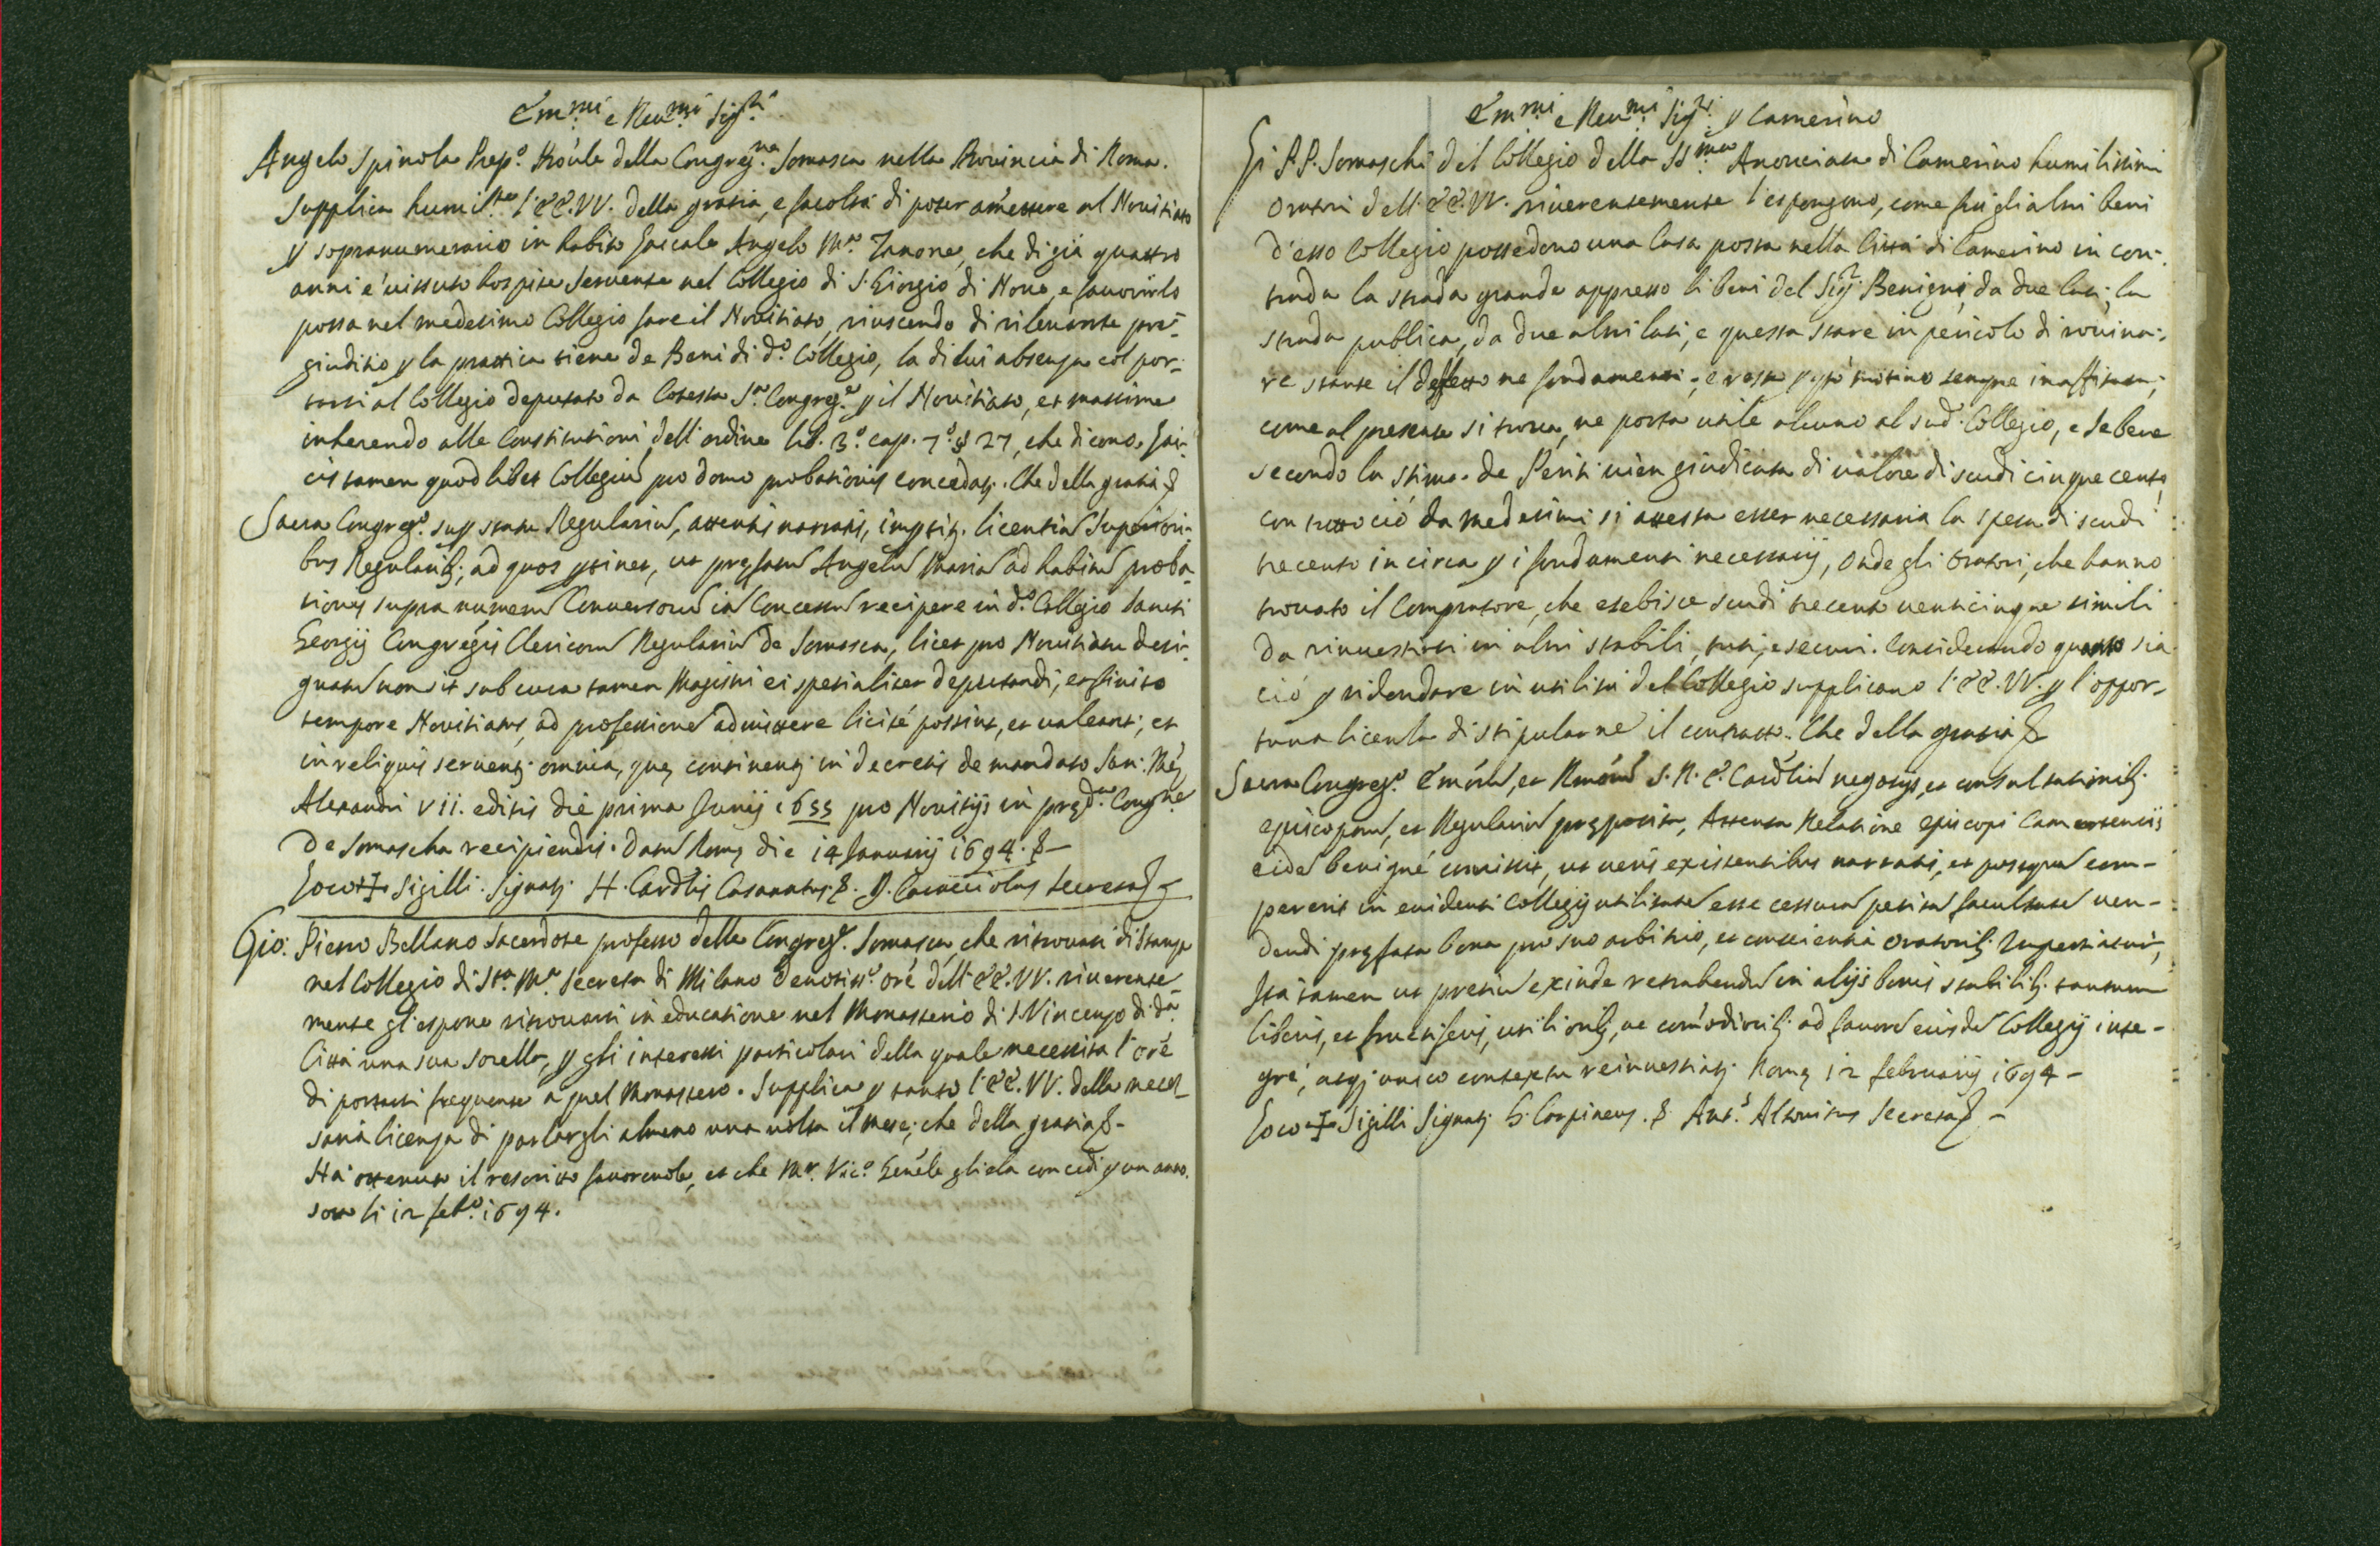 Em.mi e Reu.mi Sig.ri
Angelo Spinola Prep.o Proule della Congreg.na Somasca nella Prouincia di Roma.
Supplica humil.te l'EE.VV. della gratia, e facoltà di poter amettere al Nouitiato
p sopranumerario in habito laicale Angelo M.a Zanone, che di già quattro
anni è uissuto hospite seruente nel Collegio di S. Giorgio di Noue, e fauorirlo
possa nel medesimo Collegio fare il Nouitiato, riuscendo di rileuante pre-
giuditio p la prattica tiene de Beni di d.o Collegio, la di lui absenza col por-
tarsi al Collegio deputato da Cotesta S.a Congreg.e p il Nouitiato, et massime
inherendo alle Constitutioni dell'ordine lib. 3.o cap. 7.o § 27, che dicono. Lai-
cis tamen quodlibet Collegiũ pro domo probationis concedatj. Che della gratia &
Sacra Congreg.o sup statu Regulariũ, attentis narratis, imptitj. licentiã Superiori-
bus Regularibj, ad quos ptinet, ut prefatũ Angelũ Mariã ad habitũ proba-
tionis supra numerũ Conuersorũ iã Concessũ recipere in d.o Collegio Sancti
Georgij Congregñis Clericorũ Regulariũ de Somasca, licet pro Nouitiatu desi-
gnatũ non sit sub cura tamen Magistri ei spetialiter deputandi, et finito
tempore Nouitiatus, ad professionẽ admittere licitè possint, et ualeant; et
in reliquis seruentj omnia, quę continentj in decretis de mandato San: Mę
Alexandri VII. editis die prima Junij 1655 pro Nouitijs in pręd.a Cong.ne
de Somascha recipiendis. Datũ Romę die 14 Januarij 1694. &-
Loco + Sigilli. Signatj. H. Cardlis Casanatus. &. B. Caracciolus Secreta &
Gio: Pietro Bellano Sacerdote professo della Congreg.e Somasca, che ritrouasi di stanza
nel Collegio di Sta. M.a Secreta di Milano deuotiss.o orẽ dell'EE.VV. riuerente-
mente gl'espone ritrouarsi in educatione nel Monasterio di S. Vincenzo di dã
Città una sua sorella, p gli interessi particolari della quale necessita l'orẽ
di portarsi frequente a quel Monastero. Supplica p tanto l'EE.VV. della neces-
saria licenza di parlargli almeno una uolta il mese; che della gratia &-
Hà ottenuto il rescritto fauoreuole, et che Mr. Vic.o Genẽle gliela concedi p un anno.
sotto li 12 feb.o 1694.
Em.mi e Reu.mi Sig.ri p Camerino
Li P.P. Somaschi del Collegio della SS.ma Anonciata di Camerino humilissimi
Oratori dell'EE.VV. riuerentemente l'espongono, come frà gli altri beni
d'esso Collegio possedono una Casa posta nella Città di Camerino in con-
trada la strada grande appresso li beni del Sig.r Benigni, da due lati; la
strada publica, da due altri lati; e questa stare in pericolo di rouina-
re stante il deffetto ne fondamenti; e resta sempre inaffittata,
come al presente si troua, ne porta utile alcuno al sud.o Collegio, e se bene
secondo la stima de Periti uien giudicata di ualore di scudi cinque cento
con tutto ciò da medesimi si attesta esser necessaria la spesa di scudi
trecento in circa p i fondamenti necessarij, Onde gli Oratori, che hanno
trouato il Compratore, che esebisce scudi trecento uenticinque simili
da rinuestirsi in altri stabili, frutti, e securi. Considerando quanto sia
ciò p ridondare in utilità del Collegio supplicano l'EE.VV. p l'oppor-
tuna licenza di stipularne il contratto. Che della gratia &
Sacra Congreg.o Emõrũ, et Rmõrũ S. R. E. Cardliũ negotijs, et consultationibj
episcoporũ, et Regulariũ pręposita, Attenta Relatione episcopi Camertensis
eidẽ benignè comisit, ut ueris existentibus narratis, et postquã com-
pererit in euidenti Collegij utilitatẽ esse cessurã petitã facultatẽ uen-
dendi pręfata bona pro suo arbitrio, et conscientia Oratoribj Impertiatur,
Ita tamen ut pretiũ exinde retrahendũ in alijs bonis stabilibj tantum
liberis, et fructiferis, utilioribj, ac comodioribj ad fauorẽ eiusdẽ Collegij inte-
grè, atqj unico contextu reinuestiatj. Romę 12 februarij 1694 -
Loco + Sigilli Signatj G. Carpineus. & Ant.s Altouitus Secreta & -